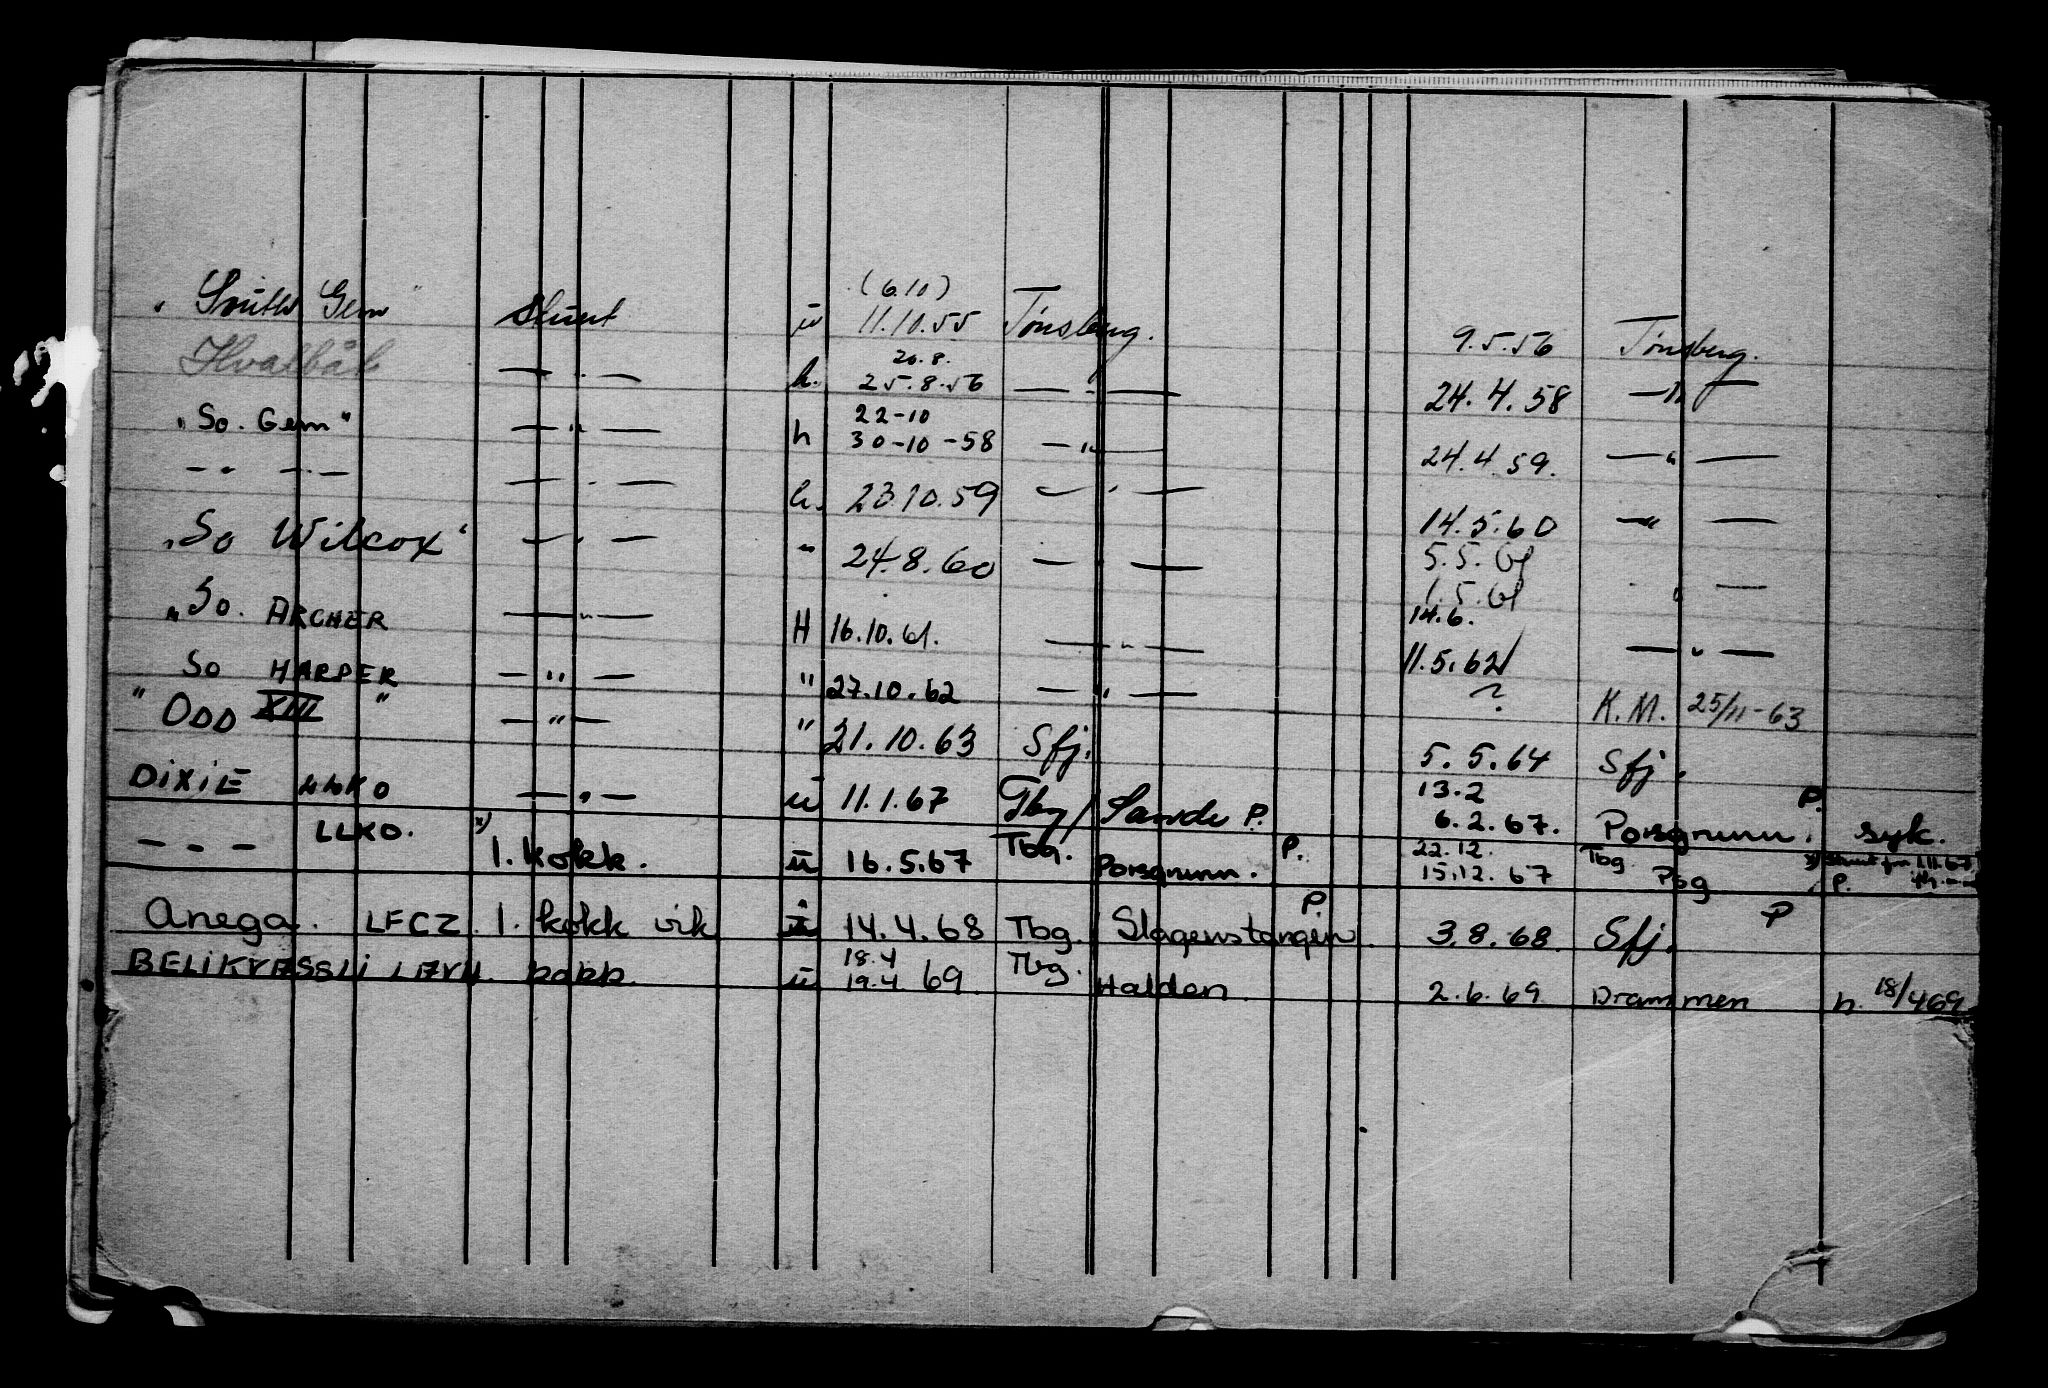 (6.10)
"South Gem" Stuert u 11.10.55 Tønsberg. 9.5.56 Tønsberg.
26.8.
Hvalbåt — . — h. 25.8.56 — - — 24.4.58 — " —
22-10
"So. Gem" — " — h 30-10-58 — " — 24.4.59. — " —
— " — — . — h. 23.10.59 — " — 14.5.60 — " —
5.5.61
"So Wilcox" — " — " 24.8.60 — " — 1.5.61 — " —
14.6.
"So. ARCHER — " — H 16.10.61. — " — 11.5.62 — " —
So HARPER — " — " 27.10.62 — " — ? K.M. 25/11-63
"ODD XIII" — " — " 21.10.63 Sfj. 5.5.64 Sfj.
13.2 P.
DIXIE LLKO — " — u 11.1.67 Tbg/ Sande P. 6.2.67. Porsgrunn. syk.
22.12. Tbg
— " — LLKO. x) 1. kokk. u 16.5.67 Tbg. Porsgrunn. P. 15.12.67 Psg P. x)
P. P
Anega. LFCZ 1. kokk vik u 14.4.68 Tbg. Slagenstangen. 3.8.68. Sfj.
18.4
kokk. u 19.4.69 Tbg. Halden. 2.6.69 Drammen h. 18/4 69